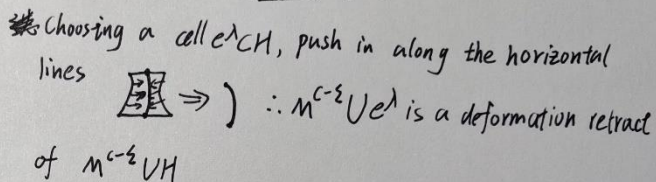 Choosing a cell e^λ⊂H, push in along the horizontal
lines ⇒ ) ∴ M^{c-ε}∪e^λ is a deformation retract
of M^{c-ε}∪H